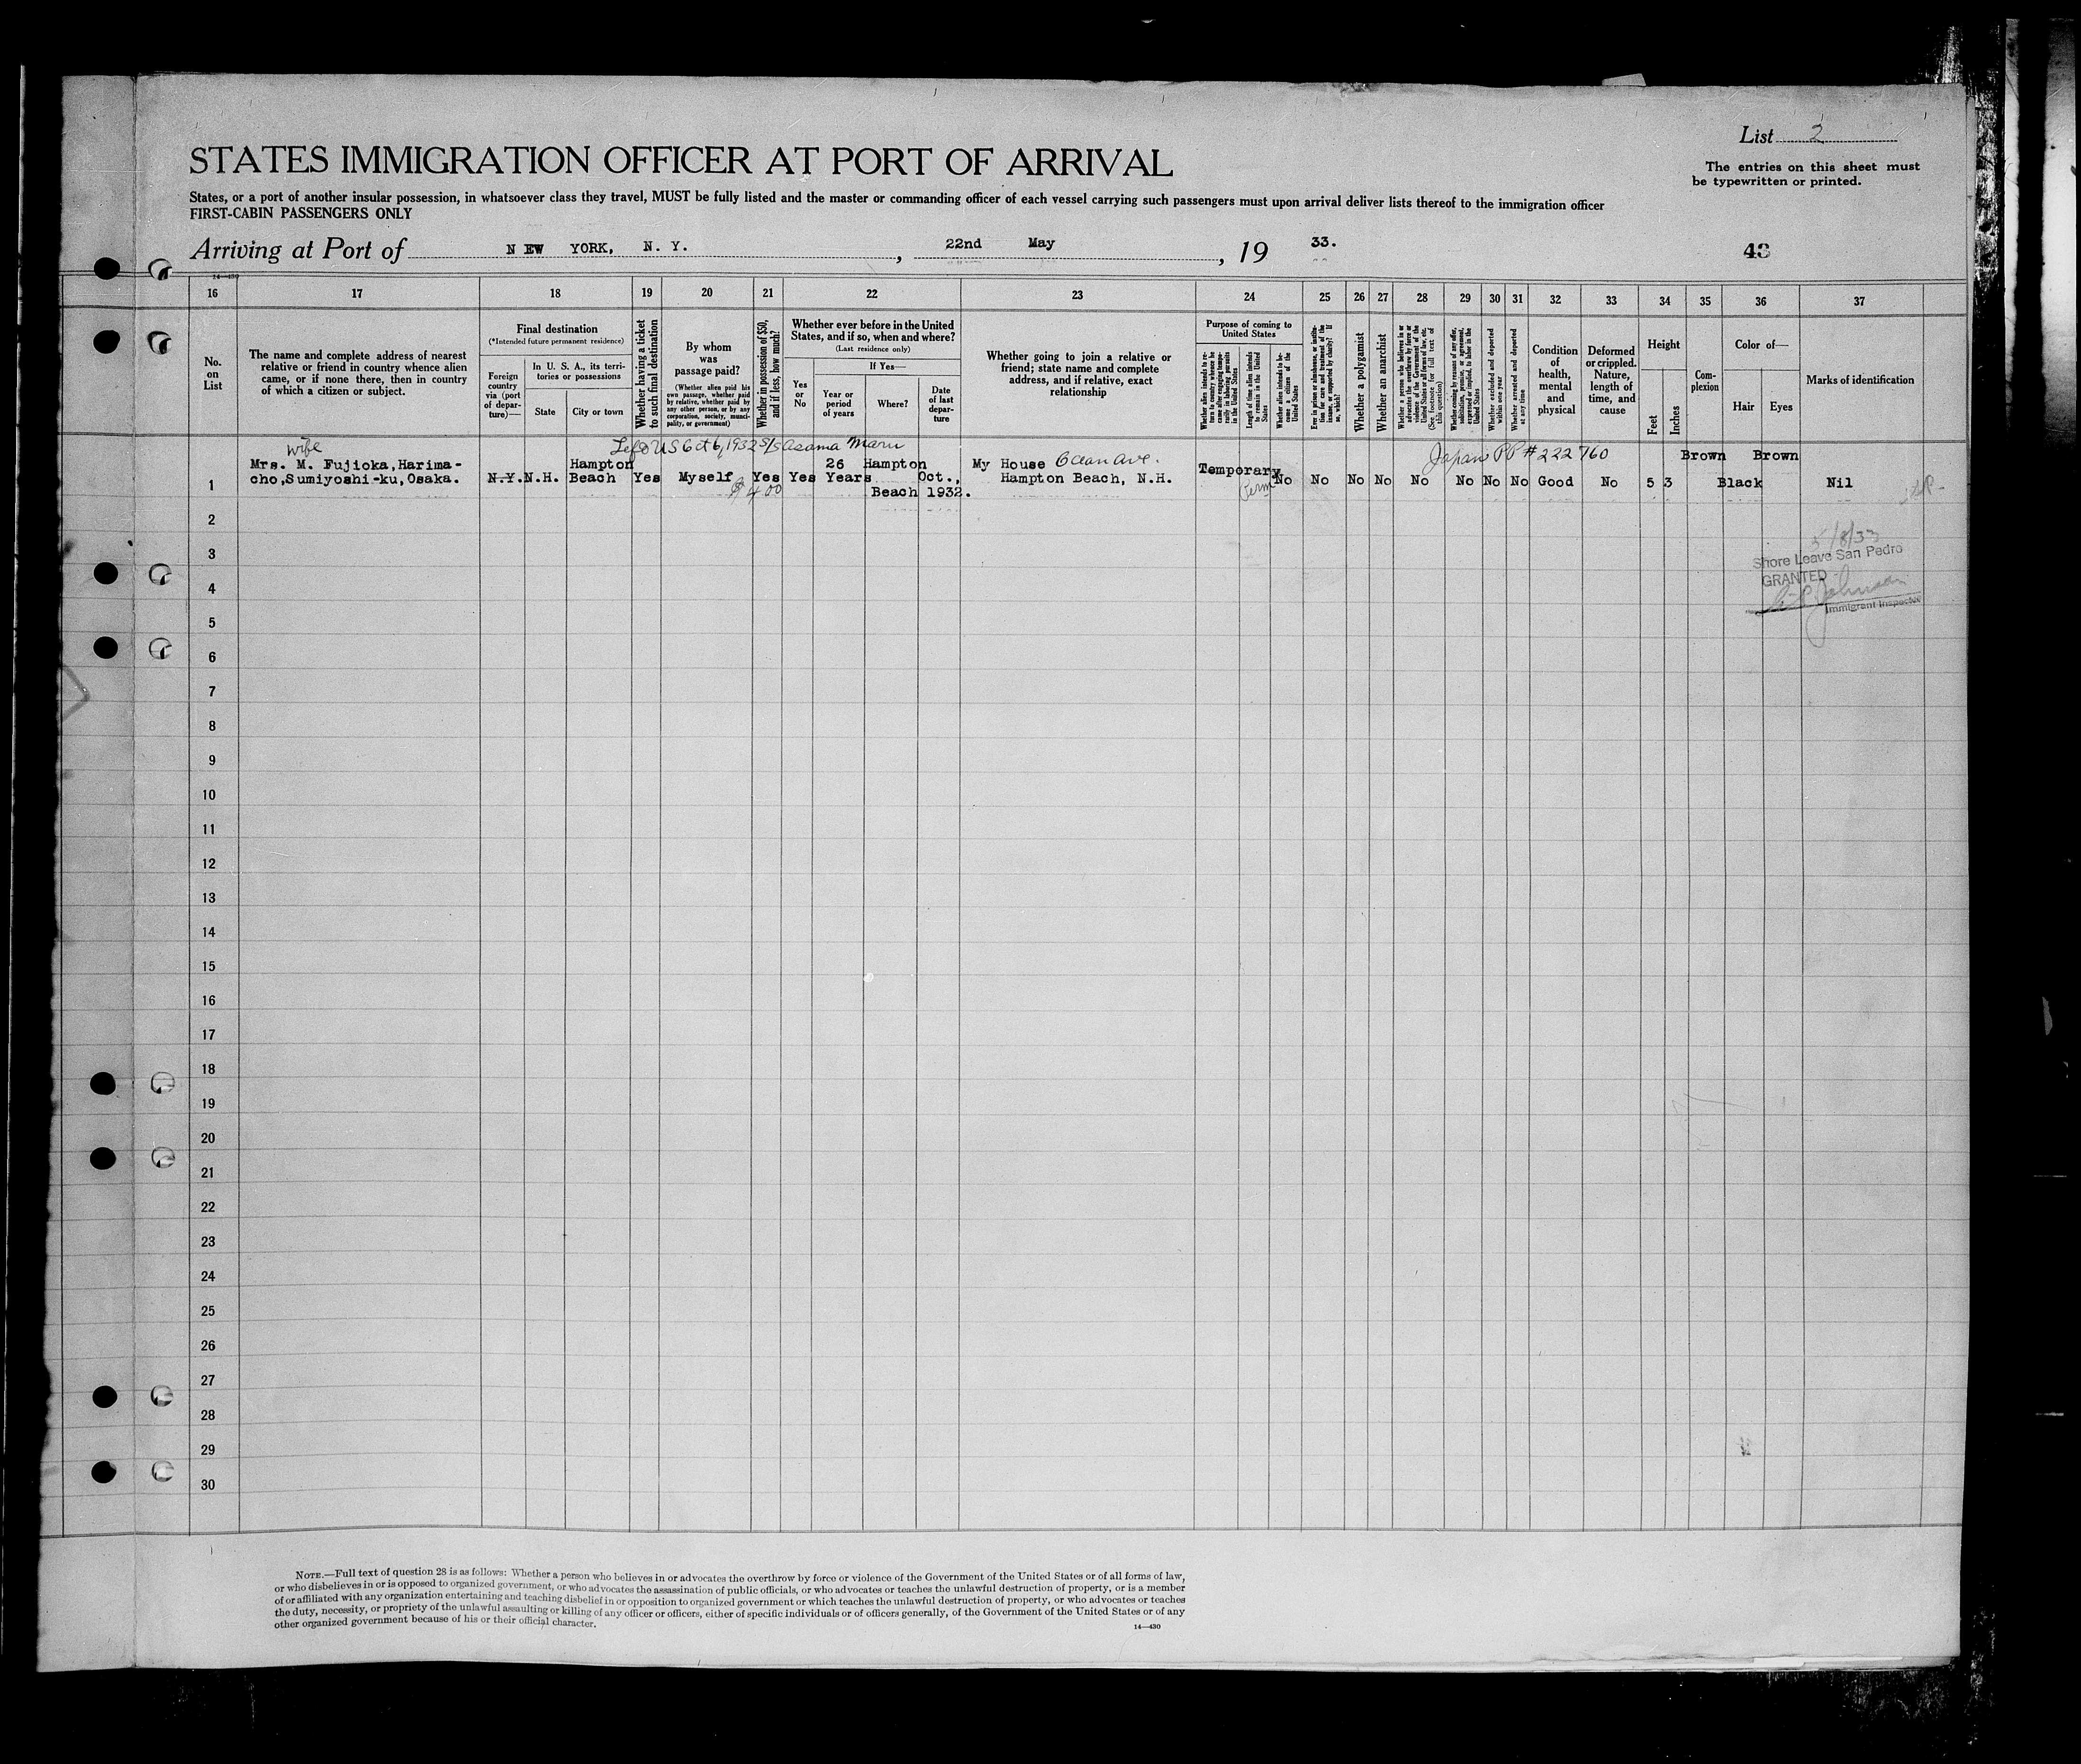 List 2
STATES IMMIGRATION OFFICER AT PORT OF ARRIVAL
The entries on this sheet must
be typewritten or printed.
States, or a port of another insular possession, in whatsoever class they travel, MUST be fully listed and the master or commanding officer of each vessel carrying such passengers must upon arrival deliver lists thereof to the immigration officer
FIRST-CABIN PASSENGERS ONLY
Arriving at Port of NEW YORK, N. Y. , 22nd May , 19 33. 43
14—430
16 17 18 19 20 21 22 23 24 25 26 27 28 29 30 31 32 33 34 35 36 37
No.
on
List
The name and complete address of nearest
relative or friend in country whence alien
came, or if none there, then in country
of which a citizen or subject.
Final destination
(*Intended future permanent residence)
Foreign
country
via (port
of depar-
ture)—
In U. S. A., its terri-
tories or possessions
State City or town
Whether having a ticket
to such final destination
By whom
was
passage paid?
(Whether alien paid his
own passage, whether paid
by relative, whether paid by
any other person, or by any
corporation, society, munici-
pality, or government)
Whether in possession of $50,
and if less, how much?
Whether ever before in the United
States, and if so, when and where?
(Last residence only)
Yes
or
No
If Yes—
Year or
period
of years
Where?
Date
of last
depar-
ture
Whether going to join a relative or
friend; state name and complete
address, and if relative, exact
relationship
Purpose of coming to
United States
Whether alien intends to re-
turn to country whence he
came after engaging tempo-
rarily in laboring pursuits
in the United States
Length of time alien intends
to remain in the United
States
Whether alien intends to be-
come a citizen of the
United States
Ever in prison or almshouse, or institu-
tion for care and treatment of the
insane, or supported by charity? If
so, which?
Whether a polygamist
Whether an anarchist
Whether a person who believes in or
advocates the overthrow by force or
violence of the Government of the
United States or all forms of law, etc.
(See footnote for full text of
this question)
Whether coming by reason of any offer,
solicitation, promise, or agreement,
expressed or implied, to labor in the
United States
Whether excluded and deported
within one year
Whether arrested and deported
at any time
Condition
of
health,
mental
and
physical
Deformed
or crippled.
Nature,
length of
time, and
cause
Height
Feet Inches
Com-
plexion
Color of—
Hair Eyes
Marks of identification
wife
Left US Oct 6, 1932 S/S Asama Maru
Japan PP # 222760
1 Mrs. M. Fujioka,Harima-
cho,Sumiyoshi-ku,Osaka.
N.Y. N.H. Hampton
Beach
Yes Myself Yes
$400
Yes 26
Years
Hampton
Beach
Oct.,
1932.
My House Ocean Ave.
Hampton Beach, N.H.
Temporary
Perm
No No No No No No No No Good No 5 3 Brown Black Brown Nil
2
3
4
5
6
7
8
9
10
11
12
13
14
15
16
17
18
19
20
21
22
23
24
25
26
27
28
29
30
5/8/33
Shore Leave San Pedro
GRANTED
Johnson
Immigrant Inspector
NOTE.—Full text of question 28 is as follows: Whether a person who believes in or advocates the overthrow by force or violence of the Government of the United States or of all forms of law,
or who disbelieves in or is opposed to organized government, or who advocates the assassination of public officials, or who advocates or teaches the unlawful destruction of property, or is a member
of or affiliated with any organization entertaining and teaching disbelief in or opposition to organized government or which teaches the unlawful destruction of property, or who advocates or teaches
the duty, necessity, or propriety of the unlawful assaulting or killing of any officer or officers, either of specific individuals or of officers generally, of the Government of the United States or of any
other organized government because of his or their official character.
14—430